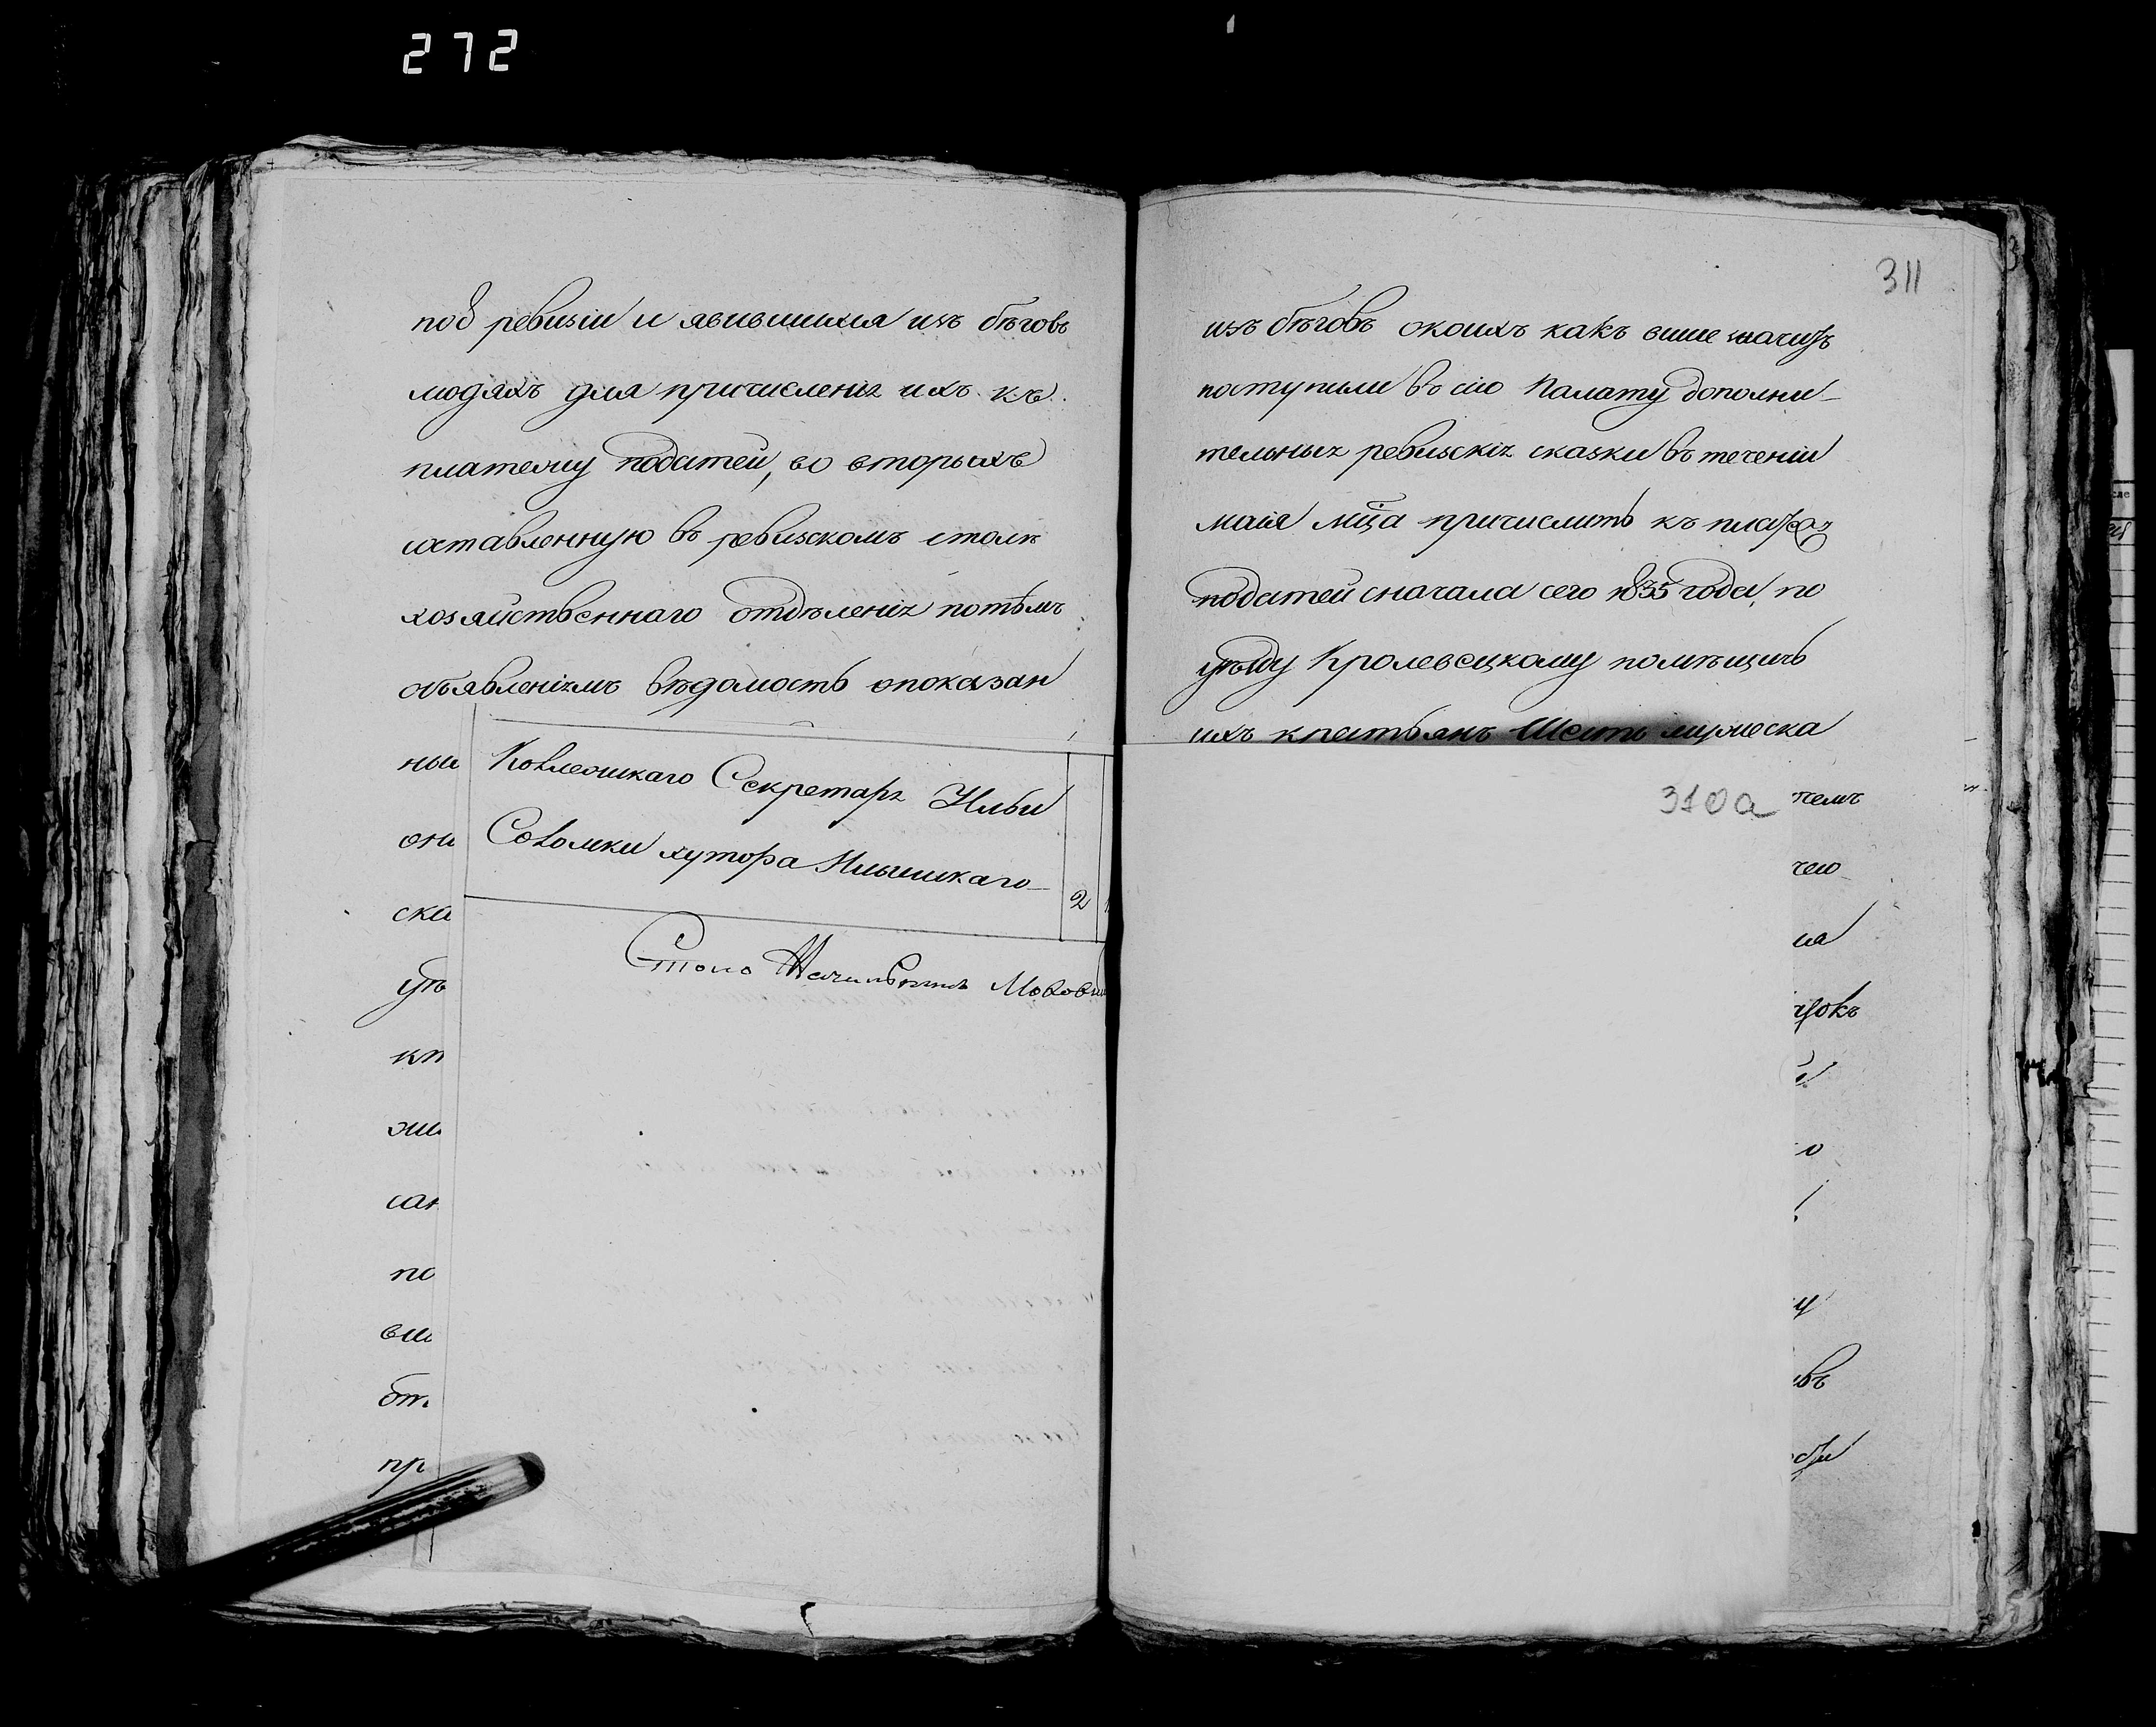 272
под ревизіи и явившихся изъ бѣговъ
людяхъ для причисленія ихъ къ
платежу податей, во вторыхъ
составленную въ ревизскомъ столѣ
хозяйственнаго отдѣленія потѣмъ
объявленіямъ вѣдомость опоказан
ны
они
ска
уѣ
кп
зи
сан
по
вш
бѣ
пр
Коллежскаго Секретаря Ильи
Соломки хутора Ильинскаго
2
Столо Начальникъ
311
изъ бѣговъ окоихъ какъ выше значитъ
поступили въ сію Палату дополни-
тельныя ревизскія сказки въ теченіи
маія мца причислить къ платеж
податей сначала сего 1835 года, по
уѣзду Кролевецкому помѣщичь
ихъ крестьянъ Шесть мужеска
310а
чемъ
чею
ла
окъ
й
о
у
въ